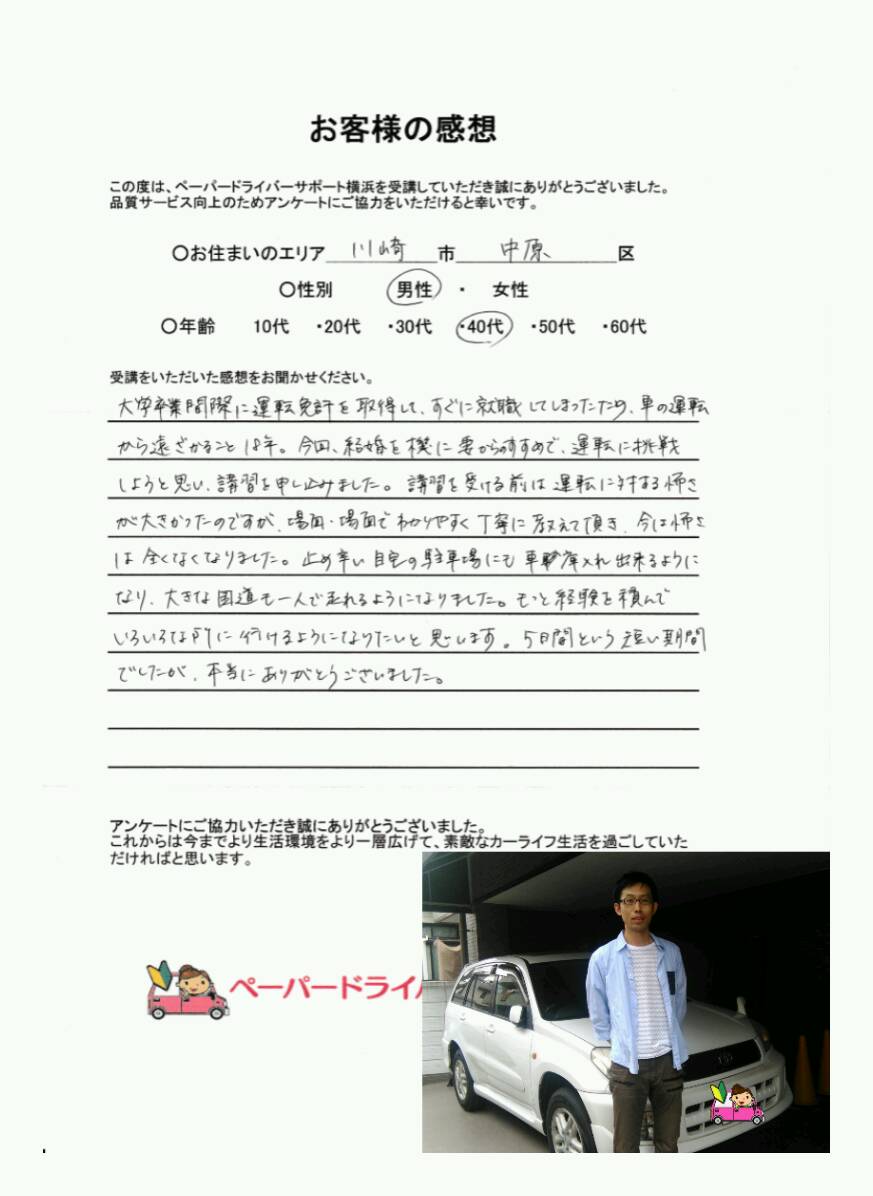 お客様の感想
この度は、ペーパードライバーサポート横浜を受講していただき誠にありがとうございました。
品質サービス向上のためアンケートにご協力をいただけると幸いです。
〇お住まいのエリア 川崎 市 中原 区
〇性別 男性 ・ 女性
〇年齢 10代 ・20代 ・30代 ・40代 ・50代 ・60代
受講をいただいた感想をお聞かせください。
大学卒業間際に運転免許を取得して、すぐに就職してしまったため、車の運転
から遠ざかること18年。今回、結婚を機に妻からのすすめで、運転に挑戦
しようと思い、講習を申し込みました。講習を受ける前は運転に対する怖さ
が大きかったのですが、場面・場面でわかりやすく丁寧に教えて頂き、今は怖さ
は全くなくなりました。止め辛い自宅の駐車場にも車庫入れ出来るように
なり、大きな国道も一人で走れるようになりました。もっと経験を積んで
いろいろな所に行けるようになりたいと思います。5日間という短い期間
でしたが、本当にありがとうございました。
アンケートにご協力いただき誠にありがとうございました。
これからは今までより生活環境をより一層広げて、素敵なカーライフ生活を過ごしていた
だければと思います。
ペーパードライ